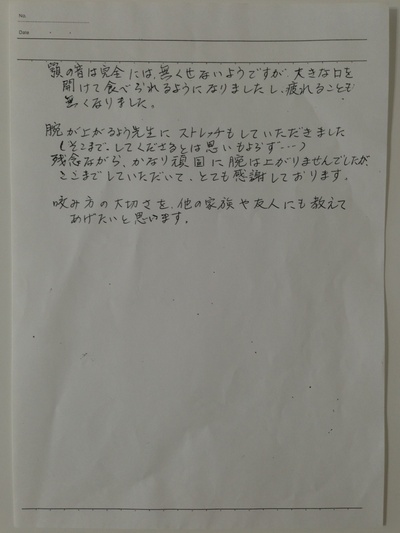 No.
Date
顎の音は完全には、無くせないようですが、大きな口を
開けて食べられるようになりましたし、疲れることも
無くなりました。
腕が上がるよう先生に ストレッチもしていただきました
(そこまで、してくださるとは思いもよらず…)
残念ながら、かなり頑固に腕は上がりませんでしたが、
ここまでしていただいて、とても感謝しております。
咬み方の大切さを、他の家族や友人にも教えて
あげたいと思います。